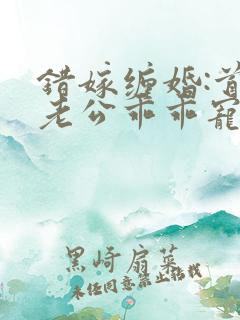 錯嫁缠婚:首
老公乖乖寵
黑崎扇菜
未经同意禁止转载